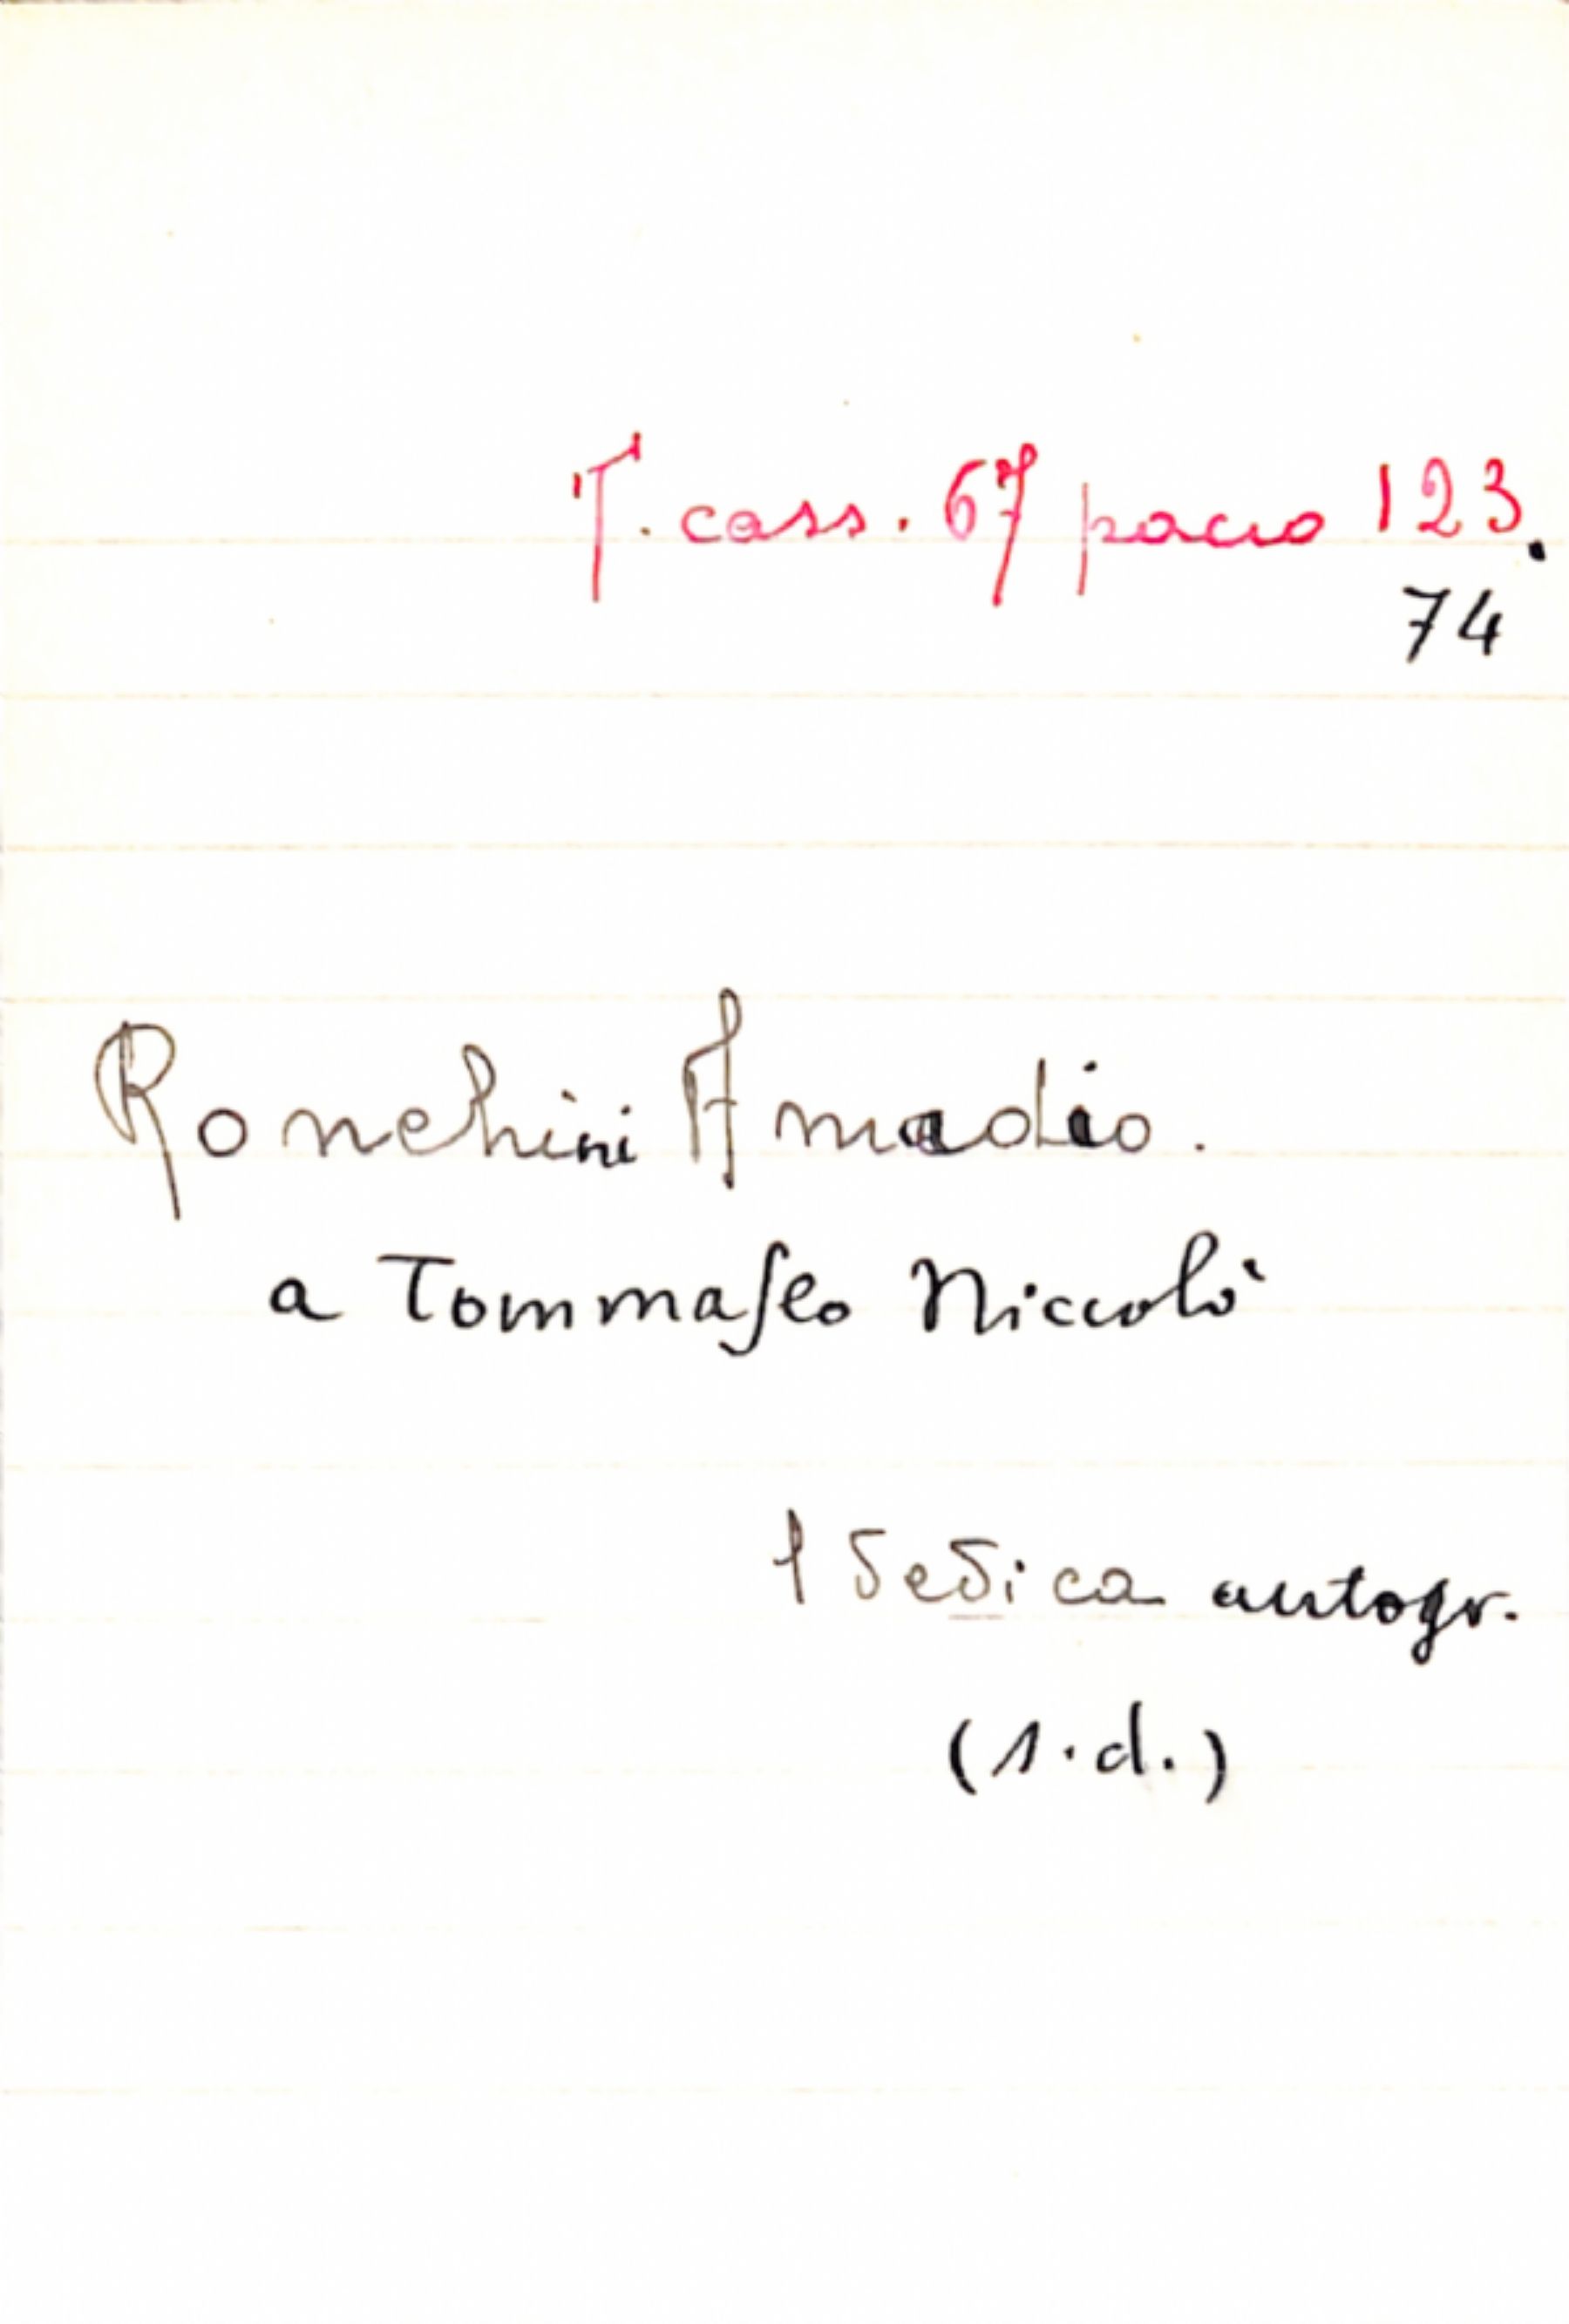 T. cass. 67 pacco 123.
74
Ronchini Amadio.
a Tommaseo Niccolò
1 dedica autogr.
(s.d.)